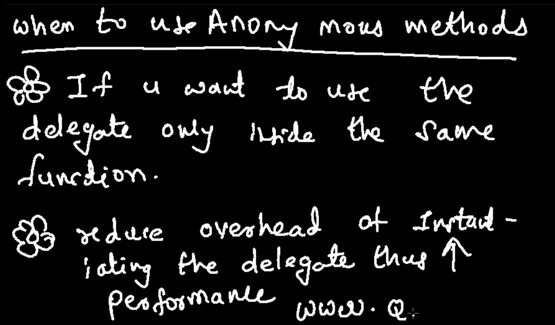 when to use Anony mous methods
If u want to use the
delegate only inside the same
function.
reduce overhead of Instant-
iating the delegate thus ↑
performance www. Q